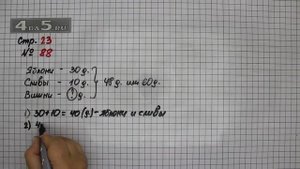 4da5.ru
Стр. 23
№ 88
Яблони - 30 д.
Сливы - 10 д.
Вишни - ? д.
48 д. или 60 д.
1) 30 + 10 = 40 (д) - яблони и сливы
2) 4